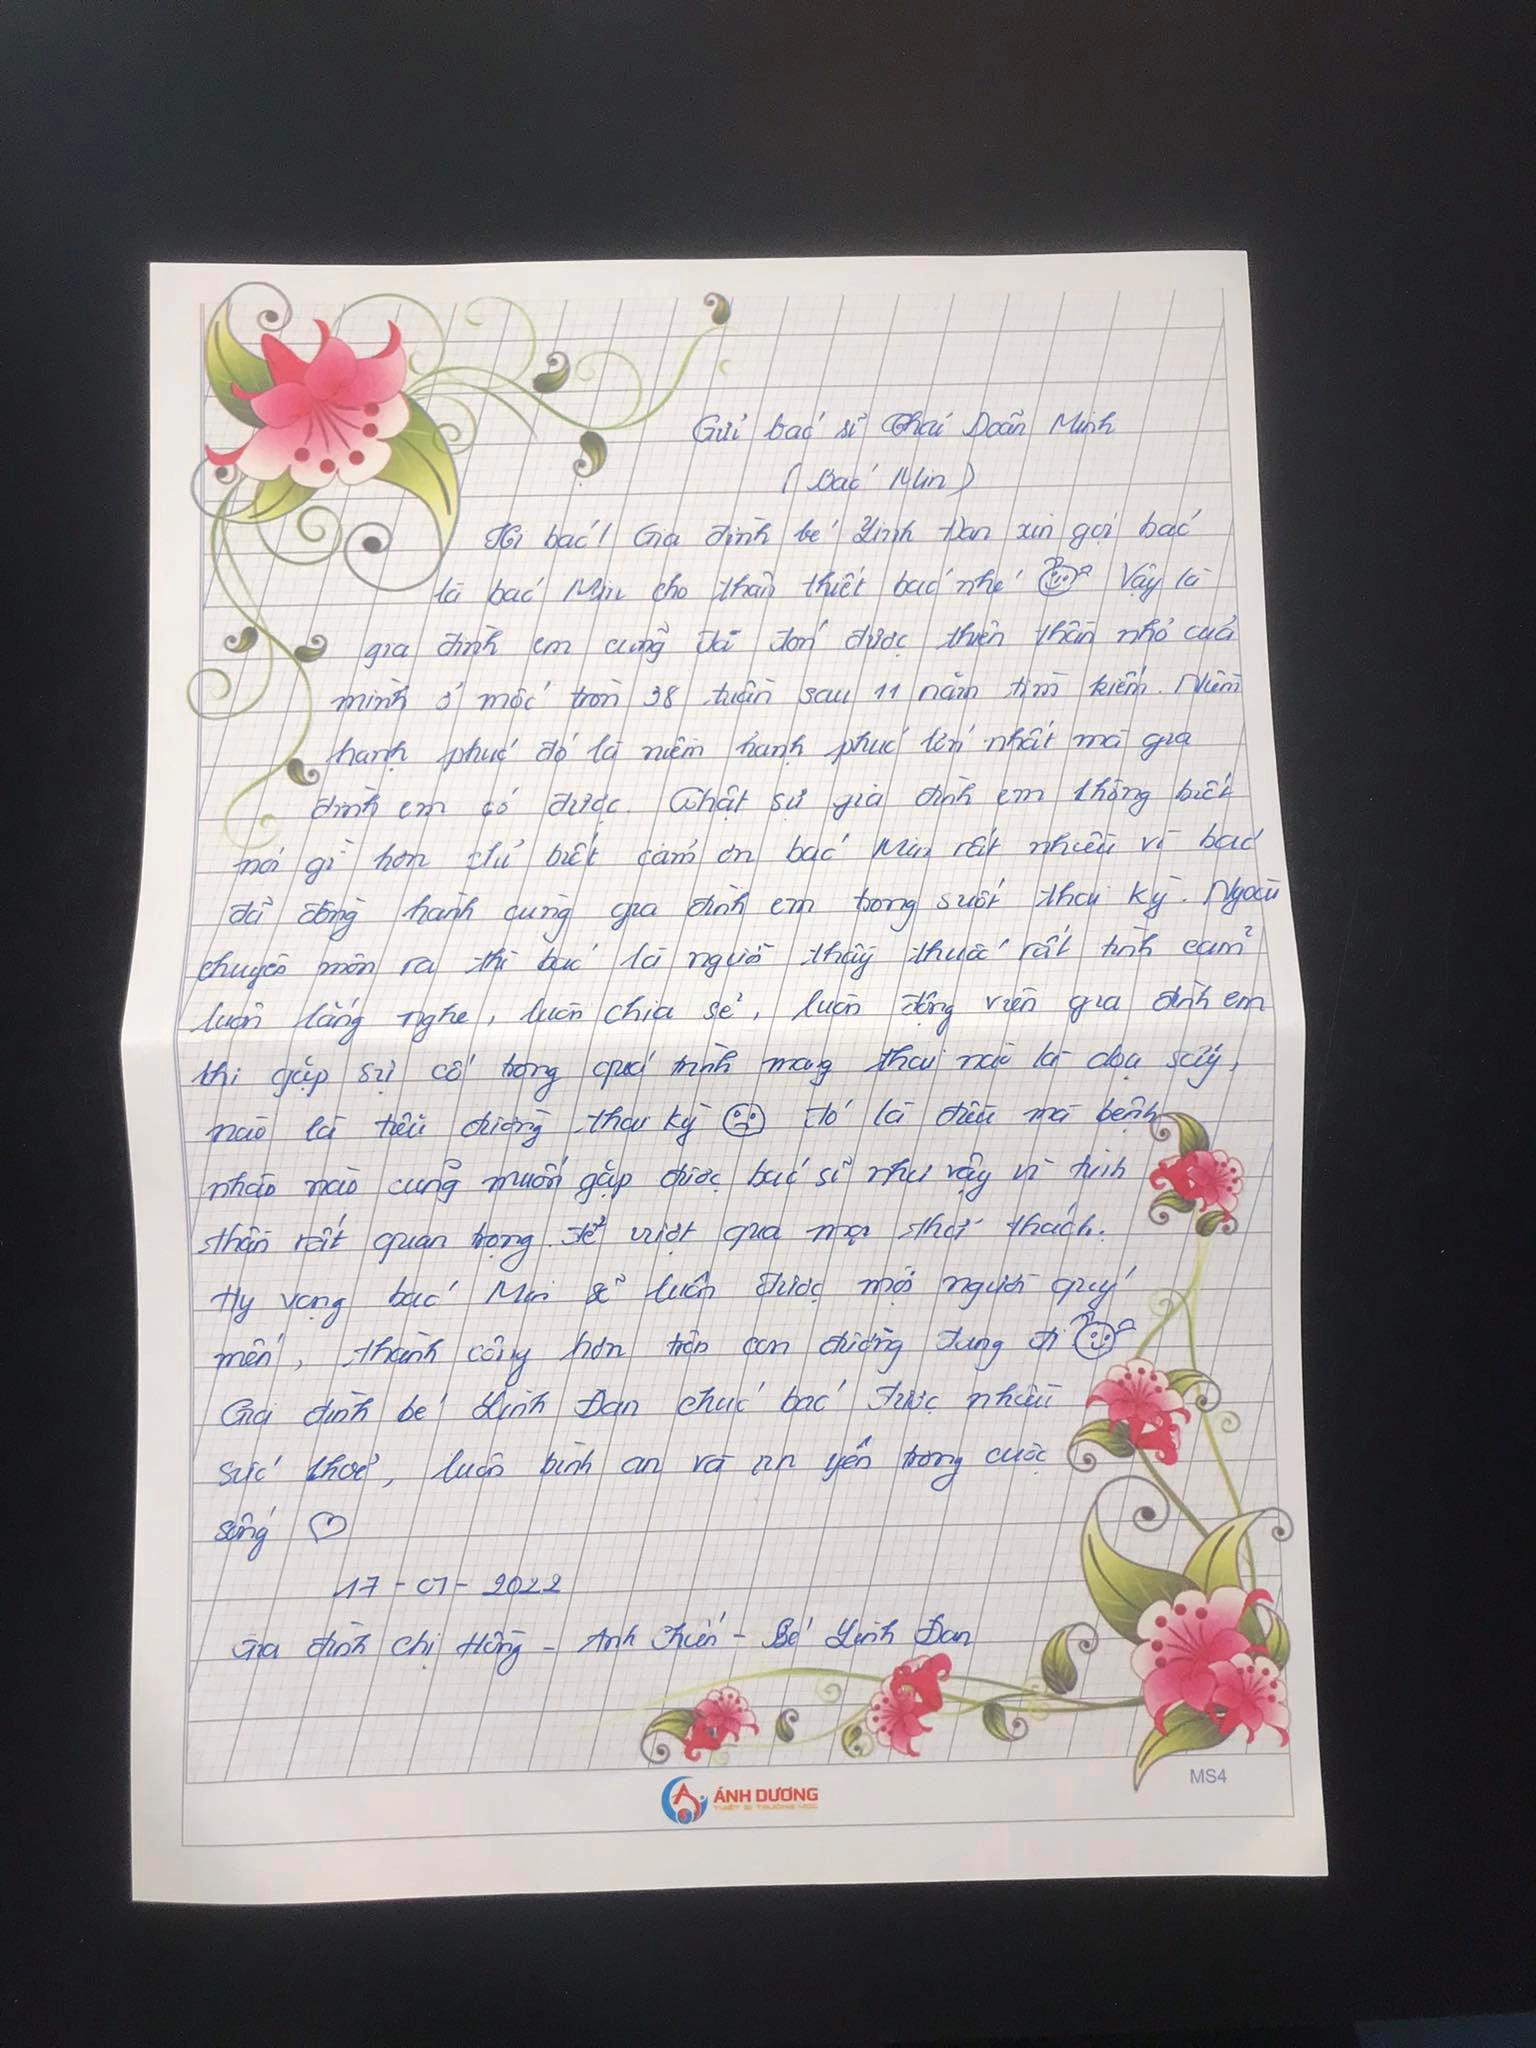 Gửi bác sĩ Thái Doãn Minh
(Bác Min)
Hi bác! Gia đình bé Linh Đan xin gọi bác
là bác Min cho thân thiết bác nhé Vậy là
gia đình em cũng đã đón được thiên thần nhỏ của
mình ở mốc tròn 38 tuần sau 11 năm tìm kiếm. Niềm
hạnh phúc đó là niềm hạnh phúc lớn nhất mà gia
đình em có được. Thật sự gia đình em không biết
nói gì hơn chỉ biết cảm ơn bác Min rất nhiều vì bác
đã đồng hành cùng gia đình em trong suốt thai kỳ. Ngoài
chuyên môn ra thì bác là người thầy thuốc rất tình cảm
luôn lắng nghe, luôn chia sẻ, luôn động viên gia đình em
khi gặp sự cố trong quá trình mang thai nào là dọa sảy,
nào là tiểu đường thai kỳ đó là điều mà bệnh
nhân nào cũng muốn gặp được bác sĩ như vậy vì tinh
thần rất quan trọng để vượt qua mọi thử thách.
Hy vọng bác Min sẽ luôn được mọi người quý
mến, thành công hơn trên con đường đang đi
Gia đình bé Linh Đan chúc bác được nhiều
sức khoẻ, luôn bình an và an yên trong cuộc
sống ♡
17-07-2022
Gia đình chị Hồng - Anh Chiến - Bé Linh Đan
ÁNH DƯƠNG
THIẾT BỊ TRƯỜNG HỌC
MS4